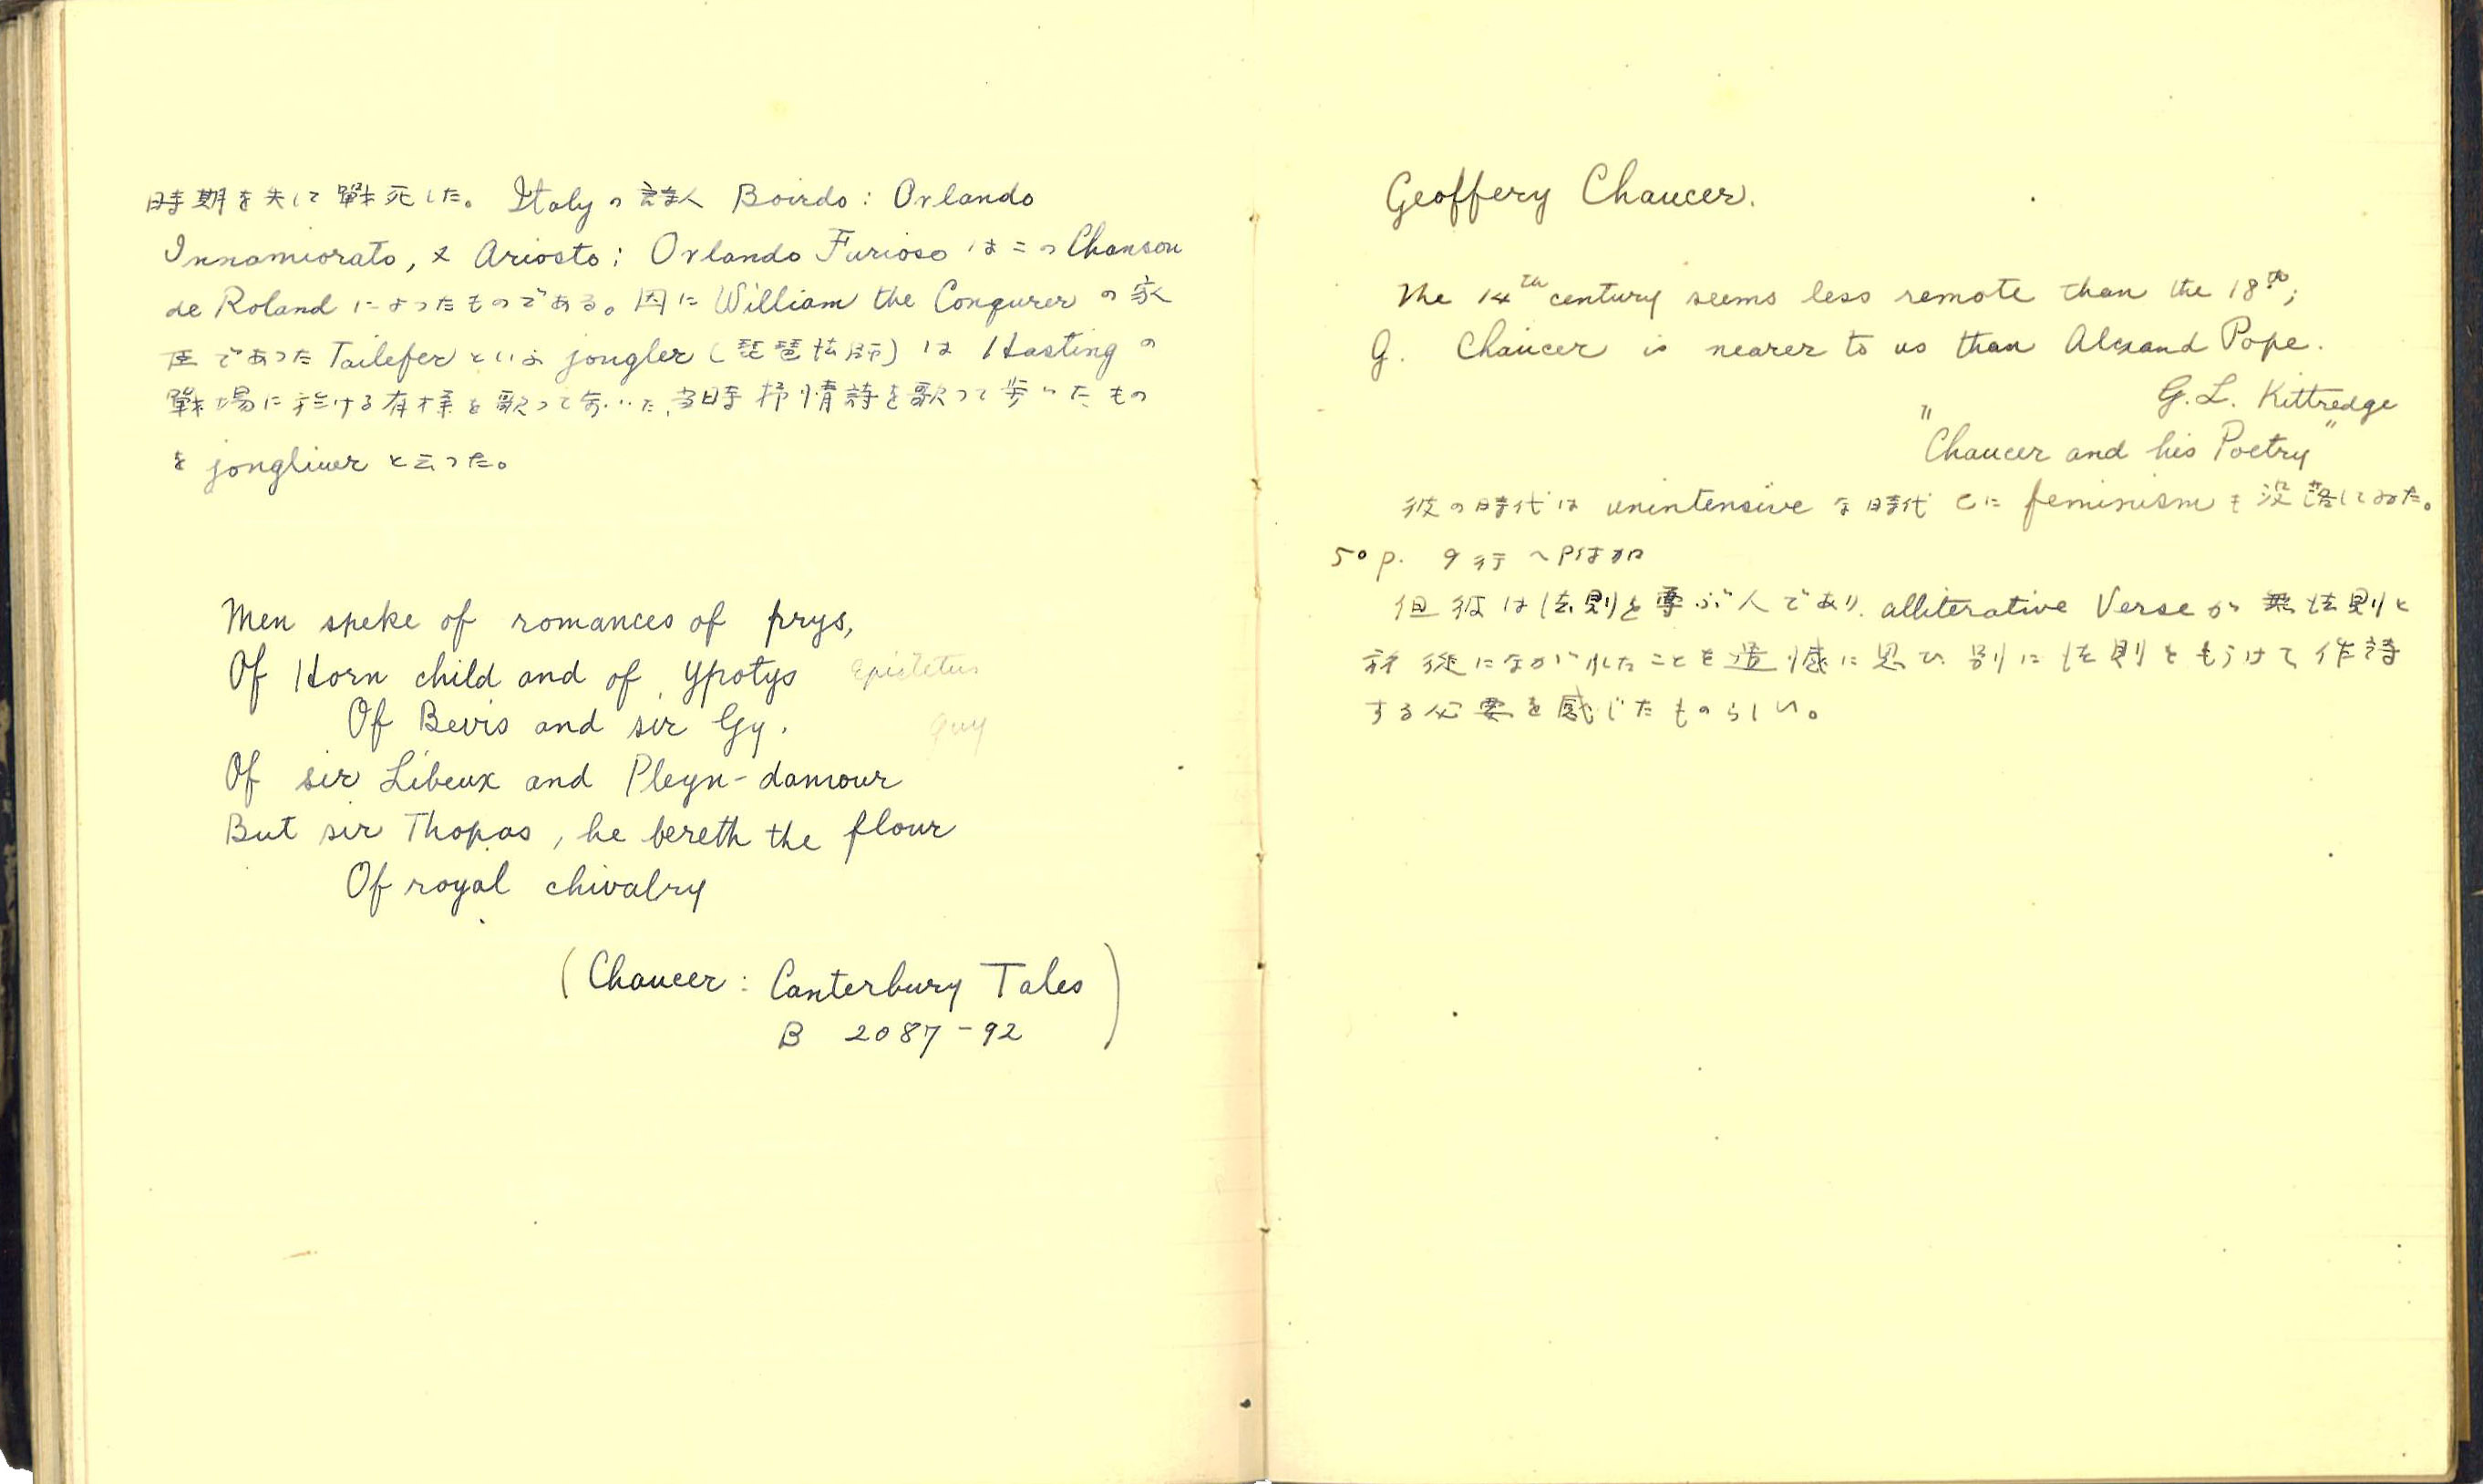 時期を失して戰死した。Italyの詩人 Boirdo: Orlando
Innamiorato, 又 Ariosto; Orlando Furioso はこの Chanson
de Roland によったものである。因に William the Conqurer の家
臣であった Tailefer といふ jongler (琵琶法師) は Hasting の
戰場に於ける有様を歌って歩いた、当時抒情詩を歌って歩いたもの
を jongliuer と云った。
Men speke of romances of prys,
Of Horn child and of Ypotys Epictetus
Of Bevis and sir Gy. Guy
Of sir Libeux and Pleyn-damour
But sir Thopas, he bereth the flour
Of royal chivalry
(Chaucer: Canterbury Tales
B 2087-92)
Geoffery Chaucer.
The 14th century seems less remote than the 18th;
G. Chaucer is nearer to us than Alexand Pope.
G.L. Kittredge
"Chaucer and his Poetry"
彼の時代は unintensive な時代 に feminism も没落してゐた。
50 p. 9行へ附加
但彼は法則を尊ぶ人であり、alliterative Verse が無法則と
放縦にながれたことを遺憾に思ひ別に法則をもうけて作詩
する必要を感じたものらしい。